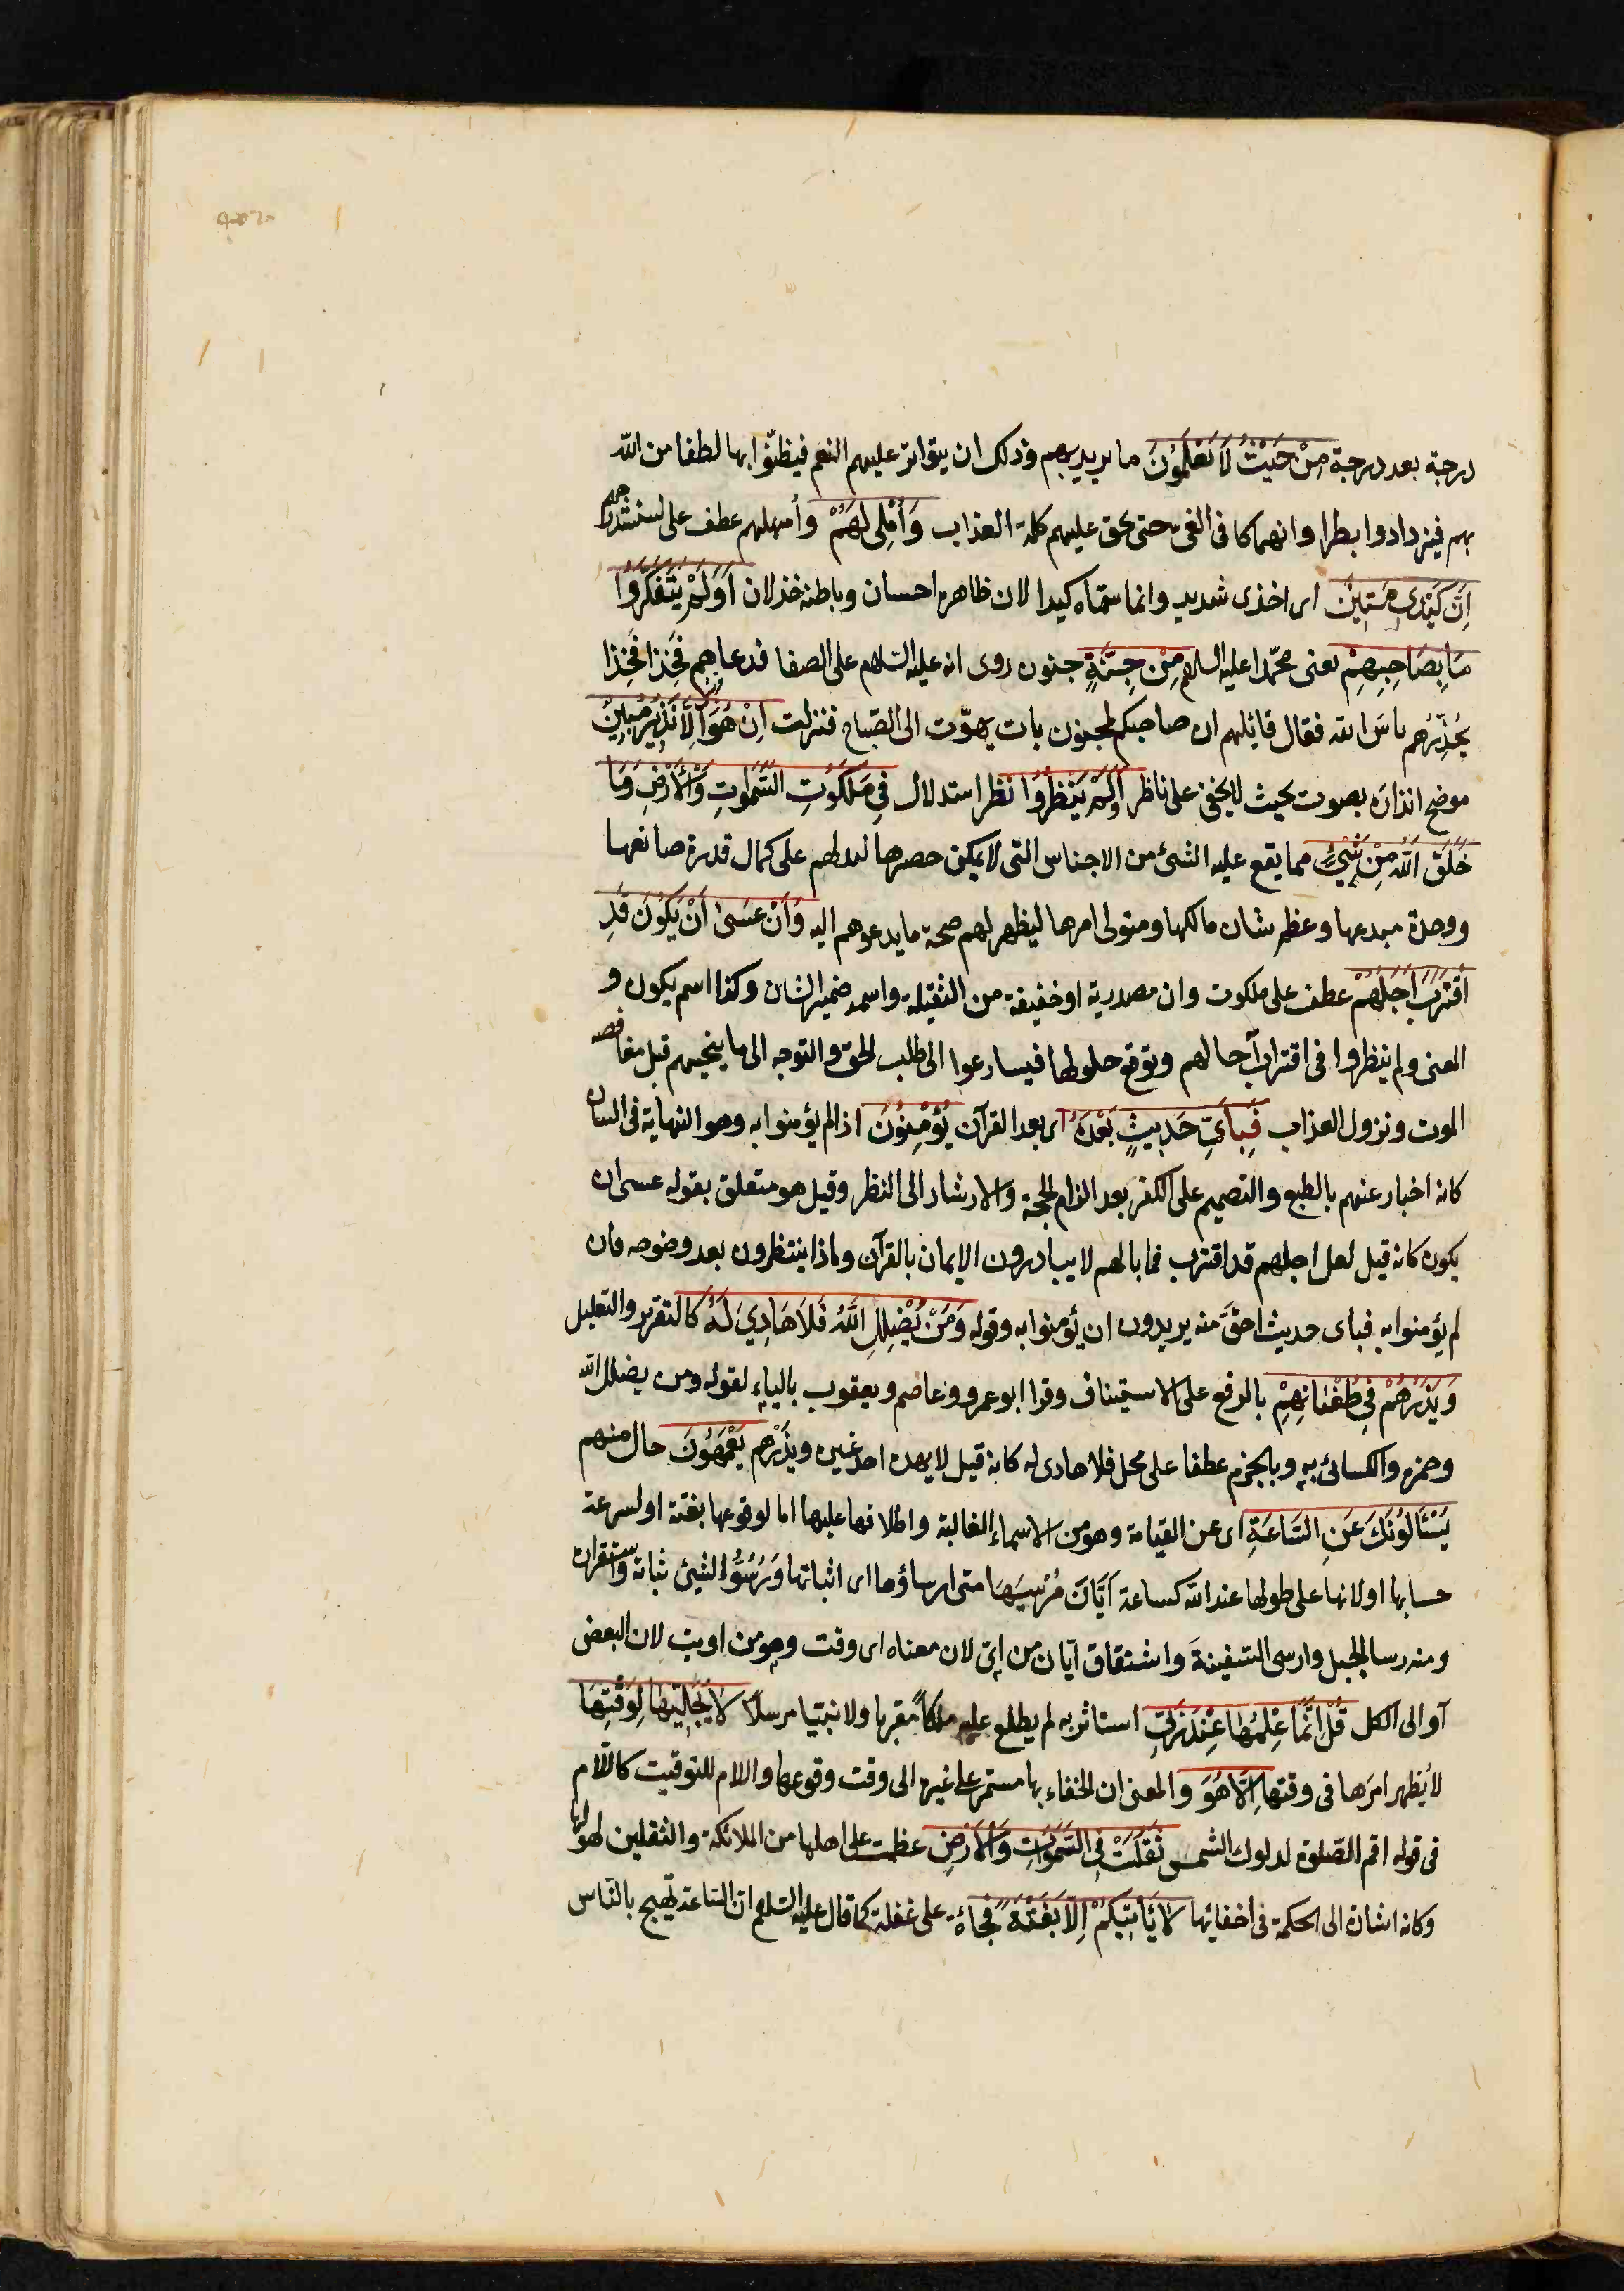 درجة بعد درجة مِنْ حَيْثُ لَا يَعْلَمُونَ ما يريد بهم وذلك ان يتواتر عليهم النعم فيظنّوا بها لطفا من الله
بهم فيزدادوا بطرا وانهماكا فى الغى حتى يحق عليهم كلمة العذاب وَأُمْلِى لَهُمْ وأمهلهم عطف على سنستدرجهم
اِنَّ كَيْدِى مَتِينٌ اى اخذى شديد وانما سمّاه كيدا لان ظاهره احسان وباطنه خذلان اَوَلَمْ يَتَفَكَّرُوا
مَا بِصَاحِبِهِمْ يعنى محمّدا عليه السلام مِنْ جِنَّةٍ جنون روى انه عليه السّلام على الصفا فدعاهم فَخِذا فَخِذا
يُحَذِّرُهم باسَ الله فقال قائلهم ان صاحبكم لمجنون بات يهوّت الى الصّباح فنزلت اِنْ هُوَ اِلَّا نَذِيرٌ مُبِينٌ
موضح انذاره بصوت بحيث لا يخفى على ناظر اَوَلَمْ يَنْظُرُوا نظر استدلال فِى مَلَكُوتِ السَّمٰوَاتِ وَالْاَرْضِ وَمَا
خَلَقَ اللّٰهُ مِنْ شَيْءٍ مما يقع عليه الشئ من الاجناس التى لا يمكن حصرها ليدلهم على كمال قدرة صانعها
ووحدة مبدعها وعظم شان مالكها ومتولى امرها ليظهر لهم صحة ما يدعوهم اليه وَاَنْ عَسَىٰ اَنْ يَكُونَ قَدِ
اقْتَرَبَ اَجَلُهُمْ عطف على ملكوت وان مصدرية او خفيفة من الثقيلة واسمه ضمير الشان وكذا اسم يكون و
المعنى ولم ينظروا فى اقتراب آجالهم وتوقع حلولها فيسارعوا الى طلب الحق والتوجه الى ما ينجيهم قبل مغافصة
الموت ونزول العذاب فَبِاَىِّ حَدِيثٍ بَعْدَهُ اى بعد القرآن يُؤْمِنُونَ اذا لم يؤمنوا به وهو النهاية فى البيان
كانه اخبار عنهم بالطبع والتصميم على الكفر بعد الزام الحجة والارشاد الى النظر وقيل هو متعلق بقوله عسى ان
يكون كانه قيل لعل اجلهم قد اقترب فما بالهم لا يبادرون الايمان بالقرآن وماذا ينتظرون بعد وضوحه فان
لم يؤمنوا به فباى حديث احقّ منه يريدون ان يؤمنوا به وقوله وَمَنْ يُضْلِلِ اللّٰهُ فَلَا هَادِىَ لَهُ كالتقرير والتعليل
وَيَذَرُهُمْ فِى طُغْيَانِهِمْ بالرفع على الاستيناف وقرا ابو عمرو وعاصم ويعقوب بالياء لقوله ومن يضلل الله
وحمزه والكسائى به وبالجزم عطفا على محل فلا هادى له كانه قيل لا يهده احد غيره ويذَرْهم يَعْمَهُونَ حال منهم
يَسْئَلُونَكَ عَنِ السَّاعَةِ اى عن القيامة وهو من الاسماء الغالبة واطلاقها عليها اما لوقوعها بغتة او لسرعة
حسابها او لانها على طولها عند الله كساعة اَيَّانَ مُرْسٰيهَا متى ارساؤها اى اثباتها ورُسُوُّ الشئ ثباته واستقراره
ومنه رسا الجبل وارسى السّفينةَ واشتقاق ايّان من اىّ لان معناه اى وقت وهو من اويت لان البعض
آو الى الكل قُلْ اِنَّمَا عِلْمُهَا عِنْدَ رَبِّى استاثر به لم يطلع عليه ملكا مقربا ولا نبيّا مرسلًا لَا يُجَلِّيهَا لِوَقْتِهَا
لا يُظهر امرَها فى وقتها اِلَّا هُوَ والمعنى ان الخفاء بها مستمر على غيره الى وقت وقوعها واللام للتوقيت كاللّام
فى قوله اقم الصّلوة لدلوك الشمس ثَقُلَتْ فِى السَّمٰوَاتِ وَالْاَرْضِ عظمت على اهلها من الملائكة والثقلين لهولها
وكانه اشارة الى الحكمة فى اخفائها لَا تَأْتِيكُمْ اِلَّا بَغْتَةً فجاءة على غفلة كما قال عليه السّلام انّ السّاعة تهيج بالنّاس